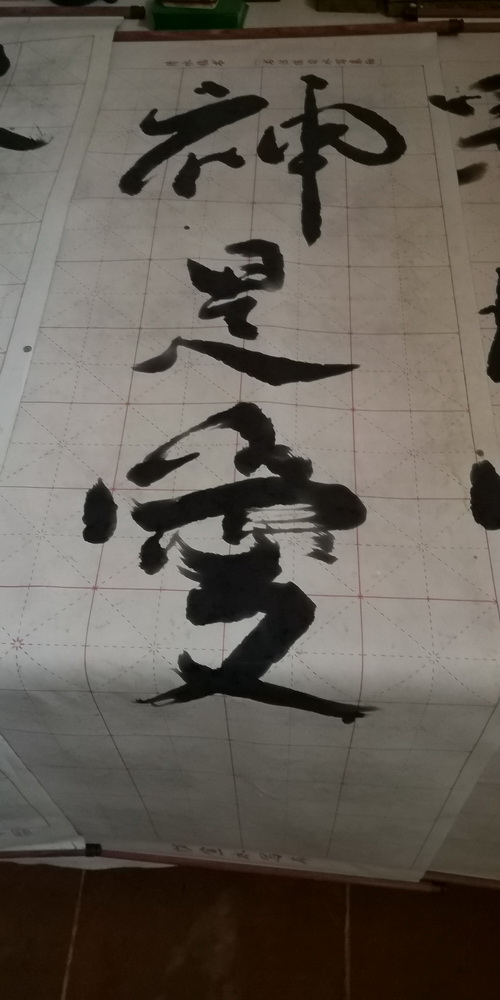 神
是
愛